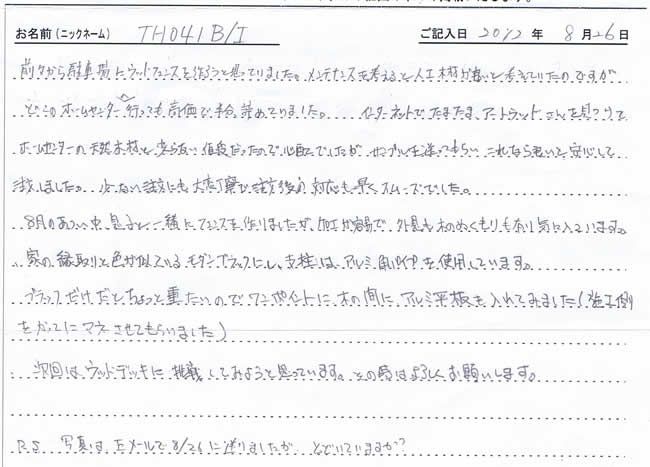 お名前(ニックネーム) TH041B/I ご記入日 2012 年 8 月 26 日
前々から駐車場にウッドフェンスを作ろうと思っていました。メンテナンスを考えると人工木材が良いと考えていたのですが
どこのホームセンターへ行っても高価で半分諦めていました。...インターネットでたまたまアートウッドさんを見つけて
ホームセンターの天然木材と変らない値段だったので心配でしたが、サンプルを送ってもらい これなら良いと安心して
注文しました。少ない注文にも大変丁寧で注文後の対応も早くスムーズでした。
8月のあつい中 息子と一緒にフェンスを作りましたが、加工が容易で、外見も木のぬくもりも有り気に入っています。
家の縁取りと色が似ているモダンブラックにし、支柱はアルミ角パイプを使用しています。
ブラックだけだとちょっと重たいのでワンポイントに木の間にアルミ平板を入れてみました(施工例
をかってにマネさせてもらいました)
次回はウッドデッキに挑戦してみようと思っています。その時はよろしくお願いします。
P.S. 写真は、Eメールで8/26に送りましたが、とどいていますか?